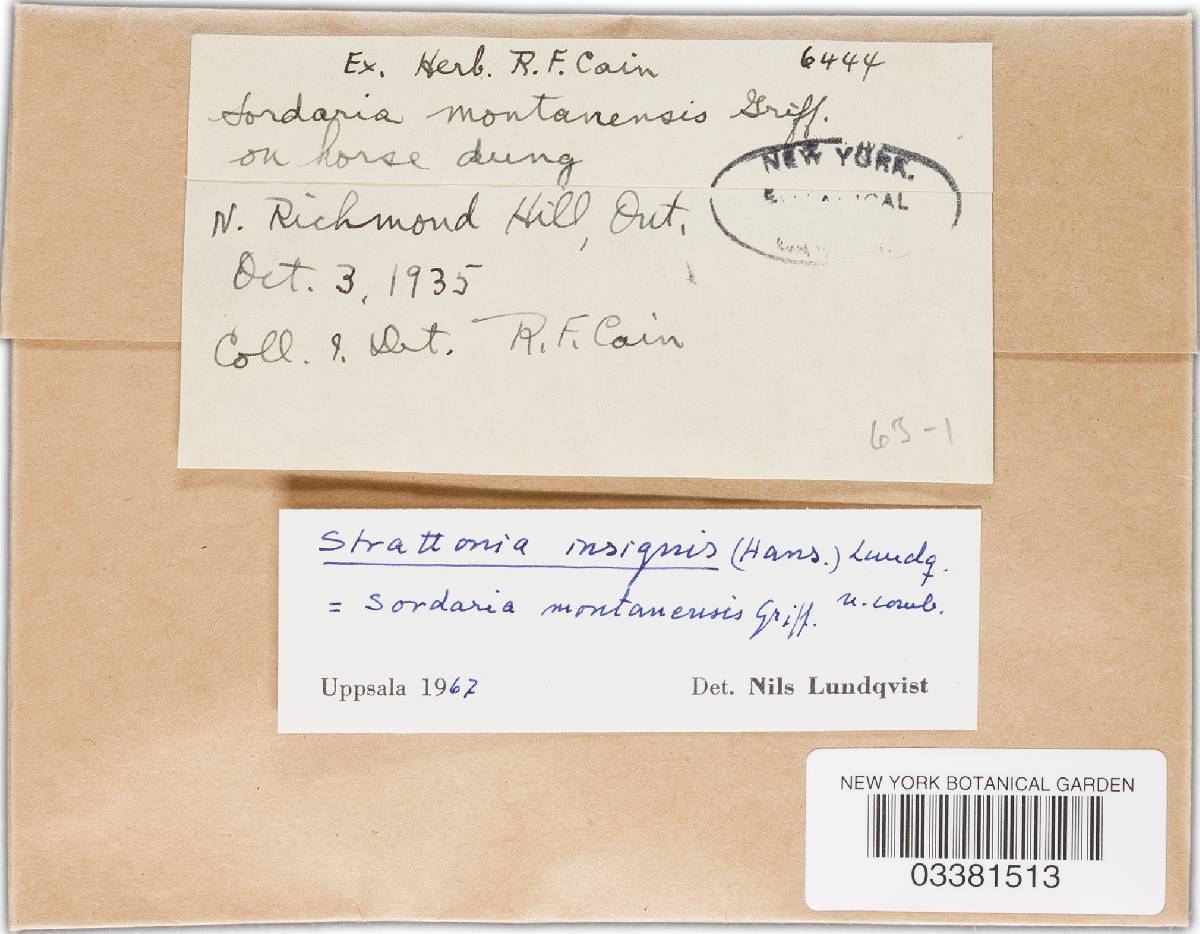 Ex. Herb. R.F. Cain 6444
Sordaria montanensis Griff.
on horse dung
NEW YORK.
N. Richmond Hill, Ont.
Oct. 3, 1935
Coll. & Det. R.F. Cain
63-1
Strattonia insignis (Hans.) Lundq.
= Sordaria montanensis Griff. n. comb.
Uppsala 1967 Det. Nils Lundqvist
NEW YORK BOTANICAL GARDEN
03381513